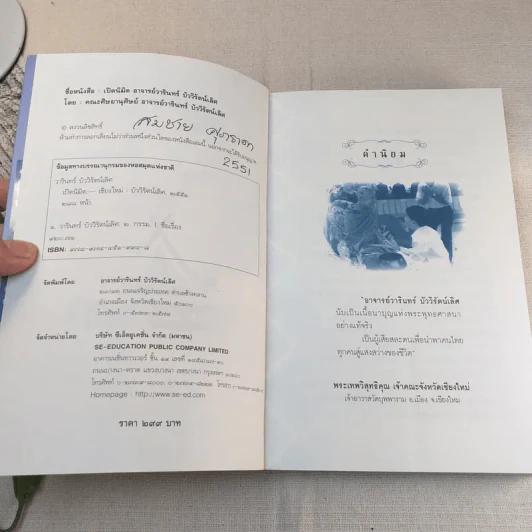 ชื่อหนังสือ : เปิดนิมิต อาจารย์วารินทร์ บัววิรัตน์เลิศ
โดย : คณะศิษยานุศิษย์ อาจารย์วารินทร์ บัววิรัตน์เลิศ
© สงวนลิขสิทธิ์
สมชาย
2551
ข้อมูลทางบรรณานุกรมของหอสมุดแห่งชาติ
วารินทร์ บัววิรัตน์เลิศ.
เปิดนิมิต.-- เชียงใหม่ : บัววิรัตน์เลิศ, ๒๕๕๑.
๒๘๘ หน้า.
๑. วารินทร์ บัววิรัตน์เลิศ. ๒. กรรม. I. ชื่อเรื่อง
ISBN:
จัดพิมพ์โดย : อาจารย์วารินทร์ บัววิรัตน์เลิศ
อำเภอเมือง จังหวัดเชียงใหม่
โทรศัพท์
จัดจำหน่ายโดย : บริษัท ซีเอ็ดยูเคชั่น จำกัด (มหาชน)
SE-EDUCATION PUBLIC COMPANY LIMITED
อาคารเนชั่นทาวเวอร์ ชั้น ๑๙ เลขที่
ถนนบางนา-ตราด แขวงบางนา เขตบางนา กรุงเทพฯ
โทรศัพท์
Homepage : http://www.se-ed.com
ราคา ๒๙๙ บาท
คำนิยม
"อาจารย์วารินทร์ บัววิรัตน์เลิศ
นับเป็นเนื้อนาบุญแห่งพระพุทธศาสนา
อย่างแท้จริง
เป็นผู้เสียสละตนเพื่อนำพาคนไทย
ทุกคนสู่แสงสว่างของชีวิต"
พระเทพวิสุทธิคุณ เจ้าคณะจังหวัดเชียงใหม่
เจ้าอาวาสวัดบุพพาราม อ.เมือง จ.เชียงใหม่